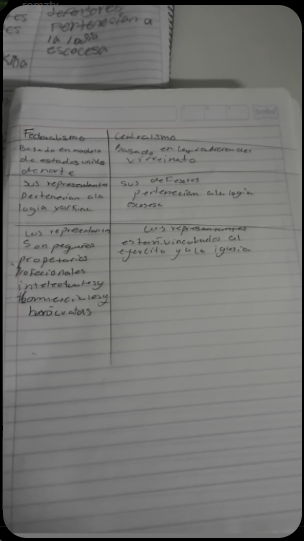 defensores
pertenecían a
la logia
escocesa
Federalismo
Basado en modelo
de estados unidos
de norte
sus representantes
pertenecian a la
logia
Los representan
s on pequeños
propetarios
profecionales
intelectuales y
burócratas
Centralismo
Basado en las tradiciones del
virreinato
sus defensores
pertenecian a la logia
Los representantes
estan vinculados al
ejercito y a la iglesia